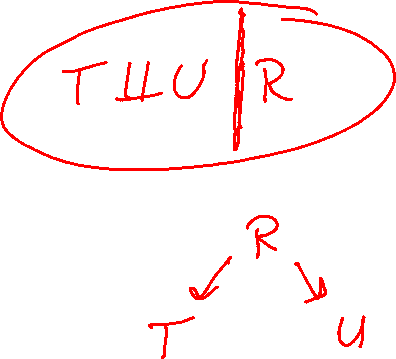 T ⫫ U | R
R
T U